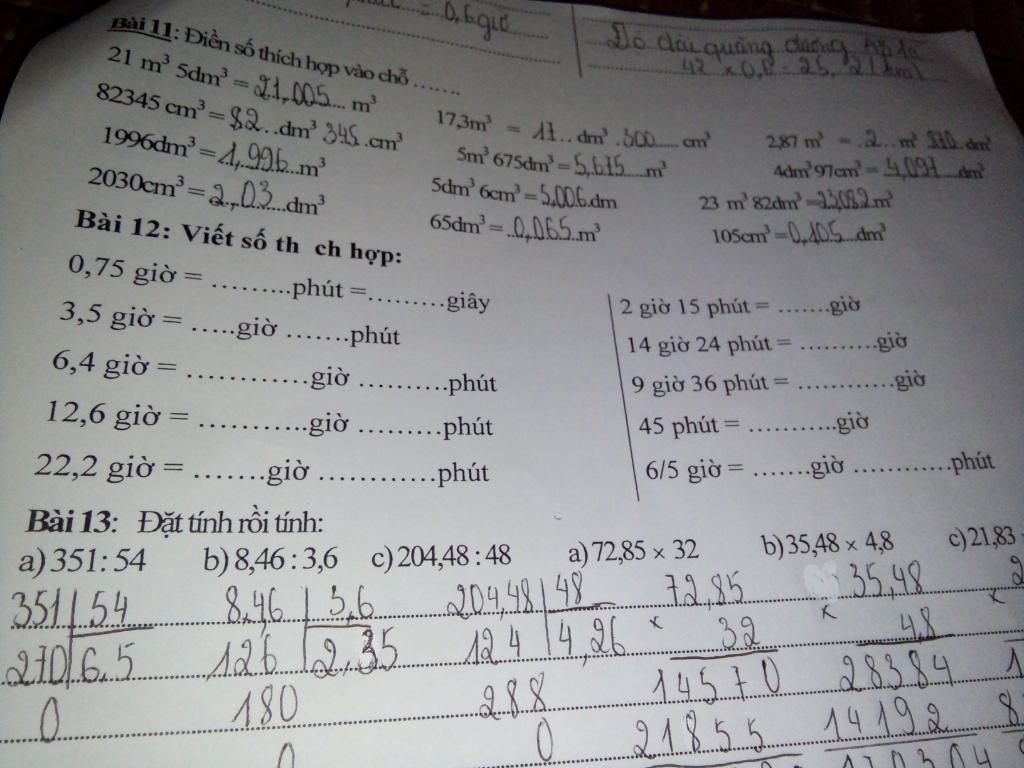 = 0,6 giờ
Độ dài quãng đường AB là
42 × 0,6 = 25,2 (km)
Bài 11: Điền số thích hợp vào chỗ …….
21 m³ 5dm³ = 21,005... m³
82345 cm³ = 82...dm³ 345.cm³
1996dm³ = 1,996...m³
2030cm³ = 2,03.....dm³
17,3m³ = 17.. dm³ .300...... cm³
5m³ 675dm³ = 5,675.....m³
5dm³ 6cm³ = 5,006.dm
65dm³ = .0,065..m³
2,87 m³ = ..2... m³ dm³
4dm³ 97cm³ = 4,097....dm³
23 m³ 82dm³ = 23,082.m³
105cm³ = 0,105...dm³
Bài 12: Viết số th ch hợp:
0,75 giờ = ………phút =………giây
3,5 giờ = …..giờ …….phút
6,4 giờ = …………giờ ……….phút
12,6 giờ = ………..giờ ………phút
22,2 giờ = …….giờ …………phút
2 giờ 15 phút = …….giờ
14 giờ 24 phút = ……….giờ
9 giờ 36 phút = …………giờ
45 phút = ………..giờ
6/5 giờ = …….giờ …………phút
Bài 13: Đặt tính rồi tính:
a) 351 : 54 b) 8,46 : 3,6 c) 204,48 : 48 a) 72,85 × 32 b) 35,48 × 4,8 c) 21,83
351 54 8,46 3,6 204,48 48 72,85 35,48 2
× 32 × 4,8 ×
270 6,5 126 2,35 124 4,26
0 180 288 14570 28384 1
0 0 21855 14192 8
170304